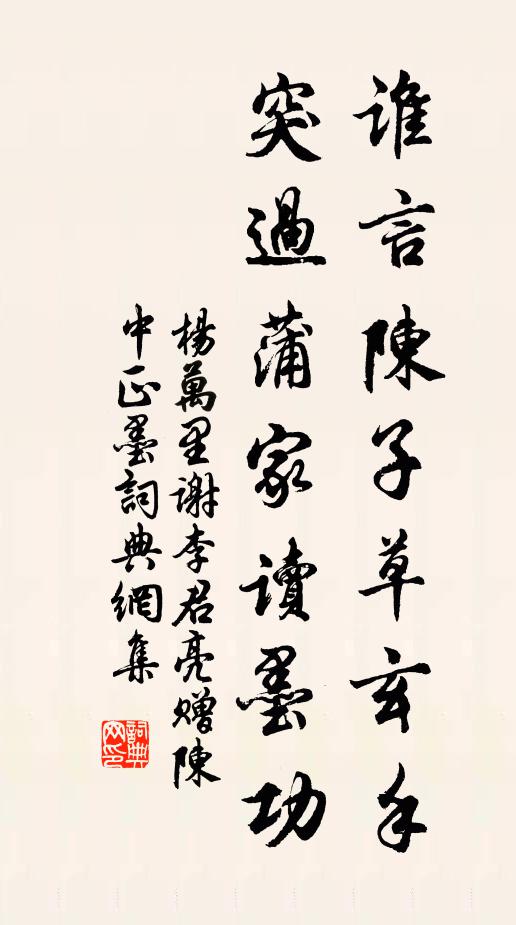 誰言陳子草玄手
突過蒲家讀墨功
楊萬里謝李君亮贈陳
中正墨詞典網集
詞典網印